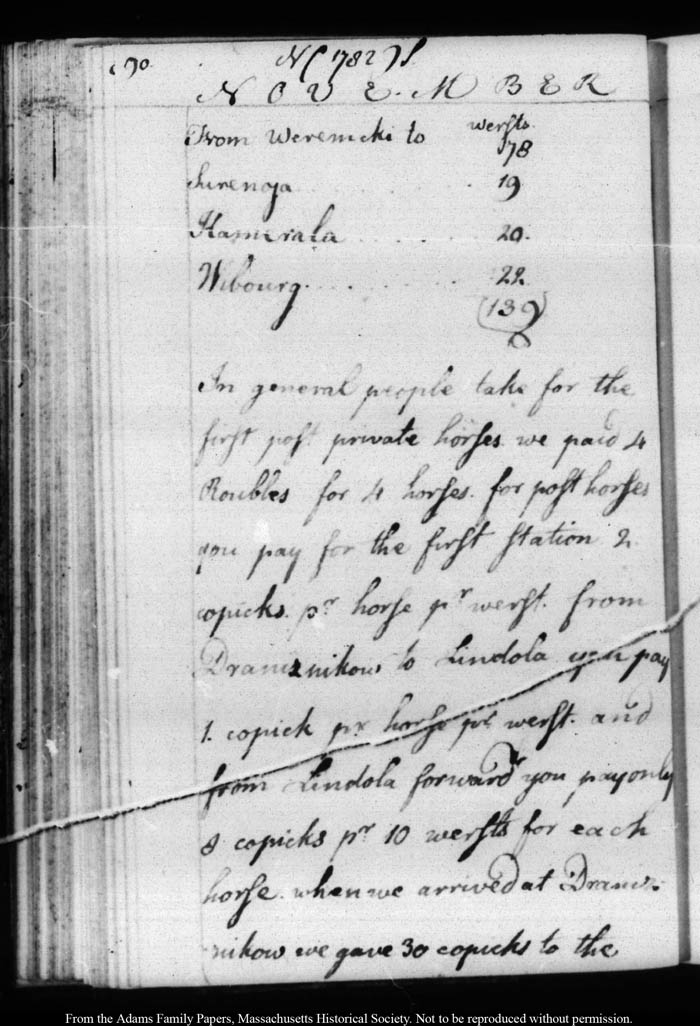 90.
N( 1782 )S.
NOVEMBER
From Weremcki to wersts.
78
Surenoja . . . . . . 19
Hamerala . . . . . . 20.
Wibourg . . . . . . 22.
(139)
In general people take for the
first post private horses. we paid 4
Roubles for 4 horses. for post horses
you pay for the first station 2
copicks. pr horse pr werst. from
Dranisnikow to Lindola you pay
1. copick pr horse pr werst. and
from Lindola forward you pay only
8 copicks pr 10 wersts for each
horse. when we arrived at Dranis-
nikow we gave 30 copicks to the
From the Adams Family Papers, Massachusetts Historical Society. Not to be reproduced without permission.